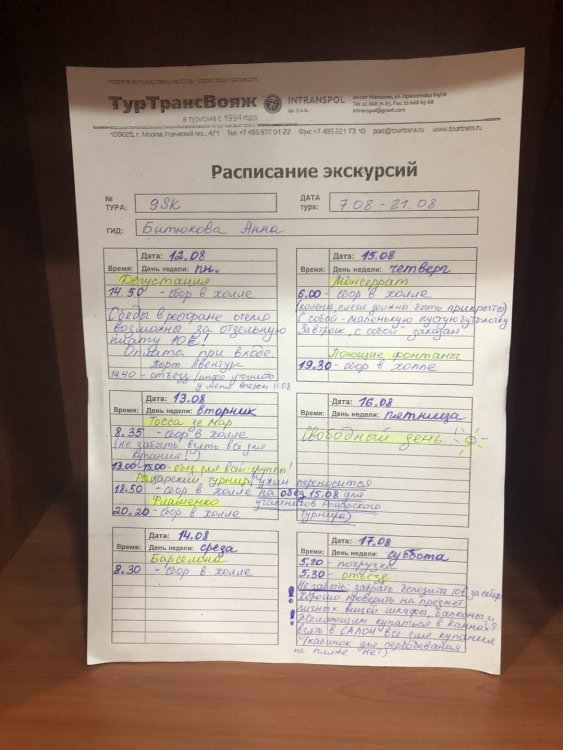 ТурТрансВояж
в туризме с 1994 года
INTRANSPOL
sp. z o.o.
02-201 Warszawa, ul. Opaczewska
Tel: 22 668 76 65, Fax: 22 668 65 68
intranspol@gmail.com
109028, г. Москва, пер., 4/1 Тел. +7 495 970 01 22 Факс +7 495 221 73 10 post@tourtrans.ru www.tourtrans.ru
Расписание экскурсий
№ ТУРА: 9SK
ДАТА тура: 7.08 - 21.08
ГИД: Битюкова Анна
Дата: 12.08
Время: День недели: пн.
Дегустация
14.50 - сбор в холле
Обеды в ресторане отеля
возможны за отдельную
плату 10€!
Оплата при входе
Порт Авентура
- отъезд (инфо уточнить
у меня вечером 11.08
Дата: 13.08
Время: День недели: вторник
Тосса де Мар
8.35 - сбор в холле
(не забыть взять все для
купания!)
13.00-15.00 - обед для всей группы!
Рыцарский турнир (ужин переносится
18.50 - сбор в холле на обед 15.08 для
участников Рыцарского
Турнира)
Фламенко
20.20 - сбор в холле
Дата: 14.08
Время: День недели: среда
Барселона
8.30 - сбор в холле
Дата: 15.08
Время: День недели: четверг
Монсеррат
6.00 - сбор в холле
(колени, плечи должны быть прикрыты)
С собой - маленькую пустую бутылочку
Завтрак "с собой" заказан
Поющие фонтаны
19.30 - сбор в холле
Дата: 16.08
Время: День недели: пятница
Свободный день
Дата: 17.08
Время: День недели: суббота
5.20 - погрузка
5.30 - отъезд
! Не забыть: забрать депозиты 10€ за сейф
Хорошо проверить на предмет
личных вещей шкафы, балконы и
! Желающим купаться в Каннах
взять в САЛОН все для купания
(кабинок для переодевания
на пляже нет!)